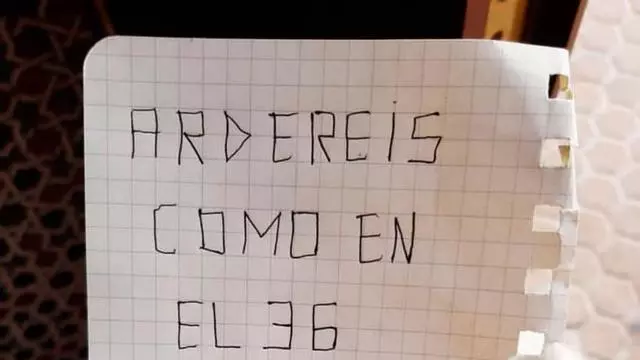 ARDEREIS
COMO EN
EL 36